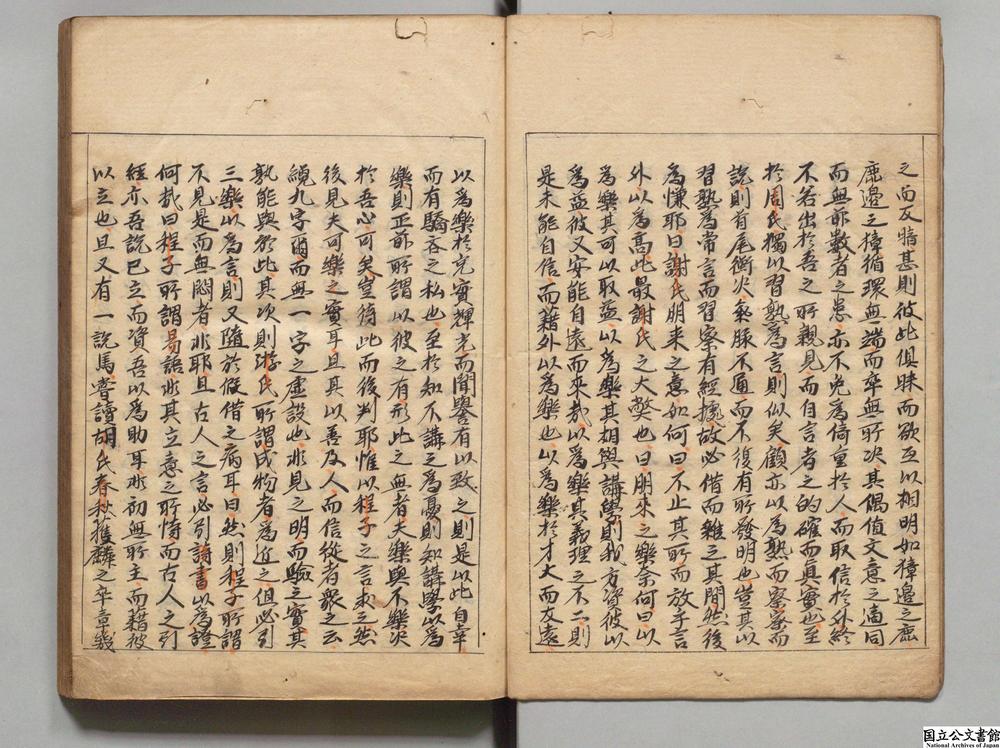 之而反晴甚則彼此俱昧而欲互以相明如獐邊之鹿
鹿邊之獐循環無端而卒無所決其偶值文意之適同
而無所數者之患亦不免為倚重於人而取信於外終
不若出於吾之所親見而自言者之的確而真實也至
於周氏獨以習熟為言則似矣顧亦以為熟而察察而
說則首尾衡決氣脉不通而不復有所發明也豈其以
習熟為常言而習察有經據故必借而雜之其間然後
為慊耶曰謝氏朋來之意如何曰不止其所而放乎言
外以為高此最謝氏之大弊也曰朋來之樂奈何曰以
為樂其可以取益以為樂其相與講學則我方資彼以
為益彼又安能自遠而來哉以為樂其義理之不二則
是未能自信而藉外以為樂也以為樂於才大而友遠
以為樂於充實輝光而聞譽有以致之則是以此自幸
而有驕吝之私也至於知不講之為憂則知講學以為
樂則正所謂以彼之有形此之無者夫樂與不樂決
於吾心可矣豈待此而後判耶惟以程子之言求之然
後見夫可樂之實耳且其以善及人而信從者眾之云
纔九字爾而無一字之虛設也非見之明而驗之實其
孰能與於此其次則游氏所謂成物者為近之但必引
三樂以為言則又隨於假借之病耳曰然則程子所謂
不見是而無悶者非耶且古人之言必引詩書以為證
何哉曰程子所謂易語非其立意之所恃而古人之引
經亦吾說已立而資吾以為助耳非初無所主而藉彼
以立也且又有一說焉嘗讀胡氏春秋獲麟之卒章幾
国立公文書館
National Archives of Japan